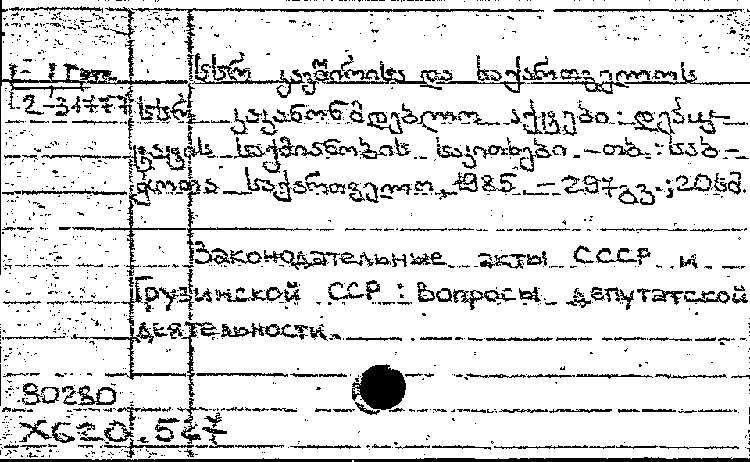 Г- 1 Груз.
სსრ კავშირისა და საქართველოს
2-31777
სსრ საკანონმდებლო აქტები: დეპუ-
ტატის საქმიანობის საკითხები. -თბ.: საბ-
ჭოთა საქართველო, 1985. - 297გვ.; 20სმ.
Законодательные акты СССР и
Грузинской ССР: Вопросы депутатской
деятельности.
80280
X620.547